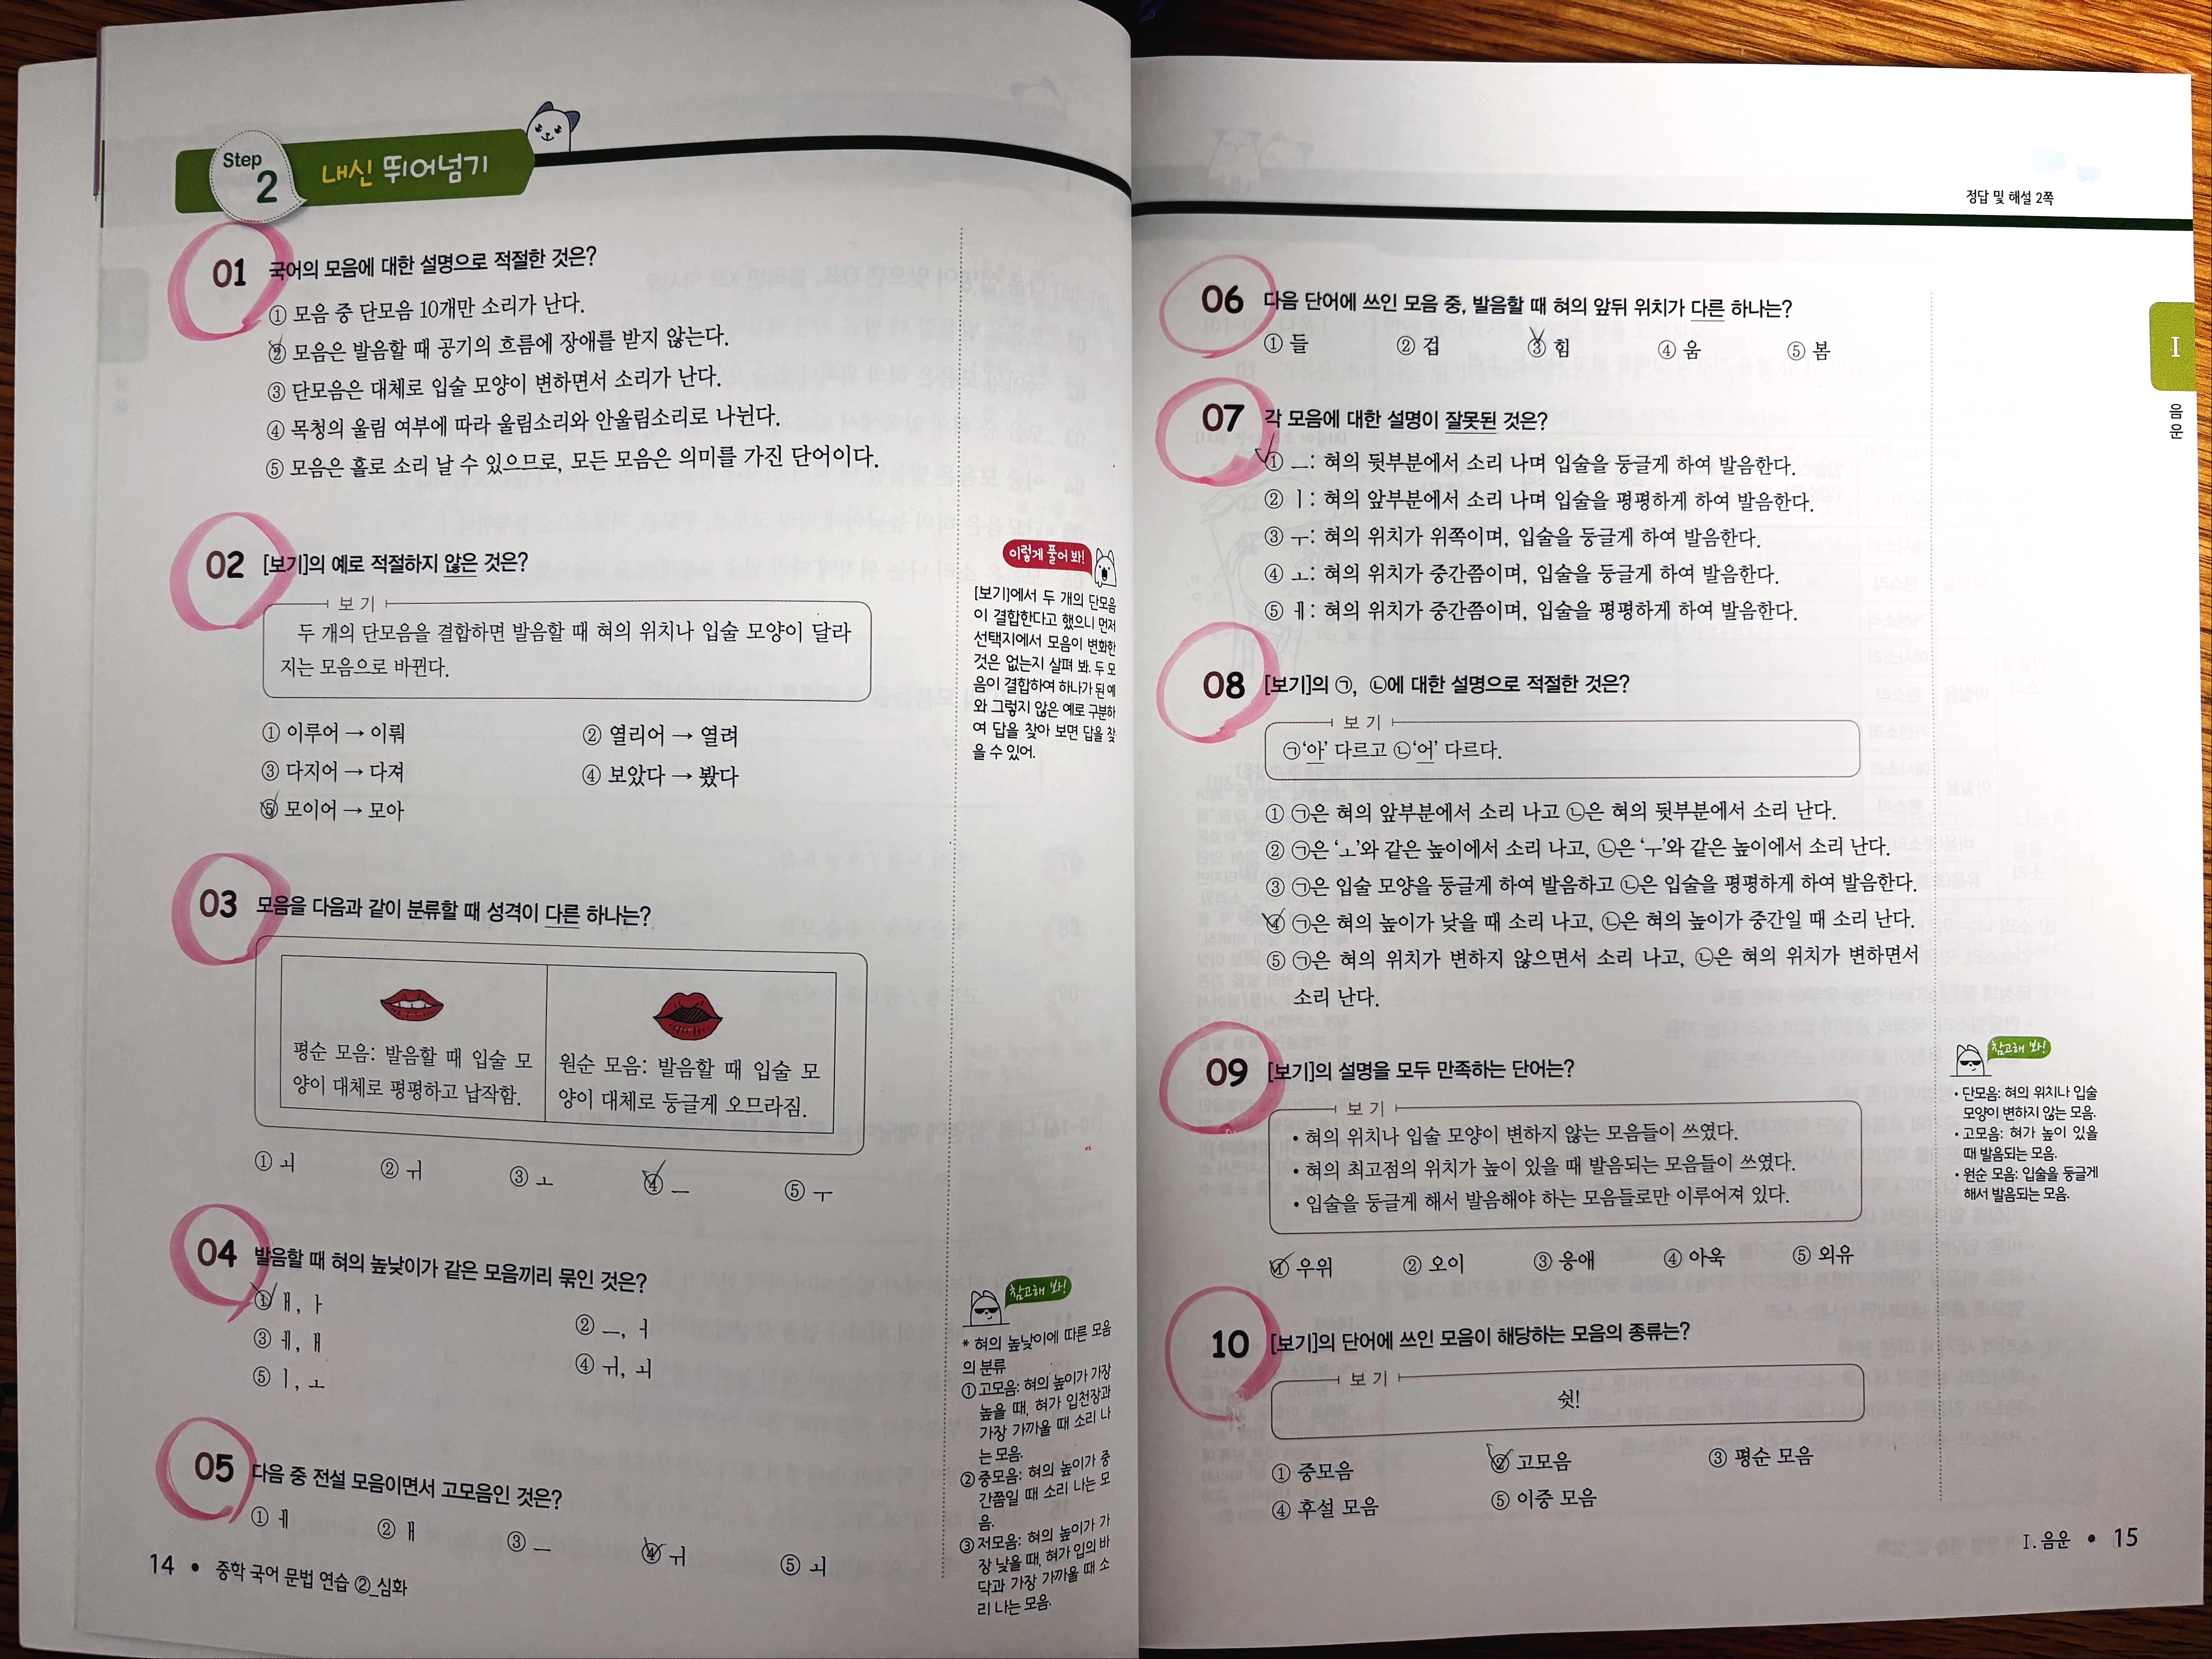 Step 2 내신 뛰어넘기
01 국어의 모음에 대한 설명으로 적절한 것은?
① 모음 중 단모음 10개만 소리가 난다.
② 모음은 발음할 때 공기의 흐름에 장애를 받지 않는다.
③ 단모음은 대체로 입술 모양이 변하면서 소리가 난다.
④ 목청의 울림 여부에 따라 울림소리와 안울림소리로 나뉜다.
⑤ 모음은 홀로 소리 날 수 있으므로, 모든 모음은 의미를 가진 단어이다.
02 [보기]의 예로 적절하지 않은 것은?
보기
두 개의 단모음을 결합하면 발음할 때 혀의 위치나 입술 모양이 달라
지는 모음으로 바뀐다.
① 이루어 → 이뤄 ② 열리어 → 열려
③ 다지어 → 다져 ④ 보았다 → 봤다
⑤ 모이어 → 모아
이렇게 풀어 봐!
[보기]에서 두 개의 단모음
이 결합한다고 했으니 먼저
선택지에서 모음이 변화한
것은 없는지 살펴 봐. 두 모
음이 결합하여 하나가 된 예
와 그렇지 않은 예로 구분하
여 답을 찾아 보면 답을 찾
을 수 있어.
03 모음을 다음과 같이 분류할 때 성격이 다른 하나는?
평순 모음: 발음할 때 입술 모
양이 대체로 평평하고 납작함.
원순 모음: 발음할 때 입술 모
양이 대체로 둥글게 오므라짐.
① ㅚ ② ㅟ ③ ㅗ ④ ㅡ ⑤ ㅜ
04 발음할 때 혀의 높낮이가 같은 모음끼리 묶인 것은?
① ㅐ, ㅏ ② ㅡ, ㅓ
③ ㅔ, ㅐ ④ ㅟ, ㅚ
⑤ ㅣ, ㅗ
참고해 봐!
* 혀의 높낮이에 따른 모음
의 분류
① 고모음: 혀의 높이가 가장
높을 때, 혀가 입천장과
가장 가까울 때 소리 나
는 모음.
② 중모음: 혀의 높이가 중
간쯤일 때 소리 나는 모
음.
③ 저모음: 혀의 높이가 가
장 낮을 때, 혀가 입의 바
닥과 가장 가까울 때 소
리 나는 모음.
05 다음 중 전설 모음이면서 고모음인 것은?
① ㅔ ② ㅐ ③ ㅡ ④ ㅟ ⑤ ㅚ
14 • 중학 국어 문법 연습 ②_심화
정답 및 해설 2쪽
06 다음 단어에 쓰인 모음 중, 발음할 때 혀의 앞뒤 위치가 다른 하나는?
① 들 ② 겁 ③ 힘 ④ 움 ⑤ 봄
I
음운
07 각 모음에 대한 설명이 잘못된 것은?
① ㅡ: 혀의 뒷부분에서 소리 나며 입술을 둥글게 하여 발음한다.
② ㅣ: 혀의 앞부분에서 소리 나며 입술을 평평하게 하여 발음한다.
③ ㅜ: 혀의 위치가 위쪽이며, 입술을 둥글게 하여 발음한다.
④ ㅗ: 혀의 위치가 중간쯤이며, 입술을 둥글게 하여 발음한다.
⑤ ㅔ: 혀의 위치가 중간쯤이며, 입술을 평평하게 하여 발음한다.
08 [보기]의 ㉠, ㉡에 대한 설명으로 적절한 것은?
보기
㉠‘아’ 다르고 ㉡‘어’ 다르다.
① ㉠은 혀의 앞부분에서 소리 나고 ㉡은 혀의 뒷부분에서 소리 난다.
② ㉠은 ‘ㅗ’와 같은 높이에서 소리 나고, ㉡은 ‘ㅜ’와 같은 높이에서 소리 난다.
③ ㉠은 입술 모양을 둥글게 하여 발음하고 ㉡은 입술을 평평하게 하여 발음한다.
④ ㉠은 혀의 높이가 낮을 때 소리 나고, ㉡은 혀의 높이가 중간일 때 소리 난다.
⑤ ㉠은 혀의 위치가 변하지 않으면서 소리 나고, ㉡은 혀의 위치가 변하면서
소리 난다.
09 [보기]의 설명을 모두 만족하는 단어는?
보기
• 혀의 위치나 입술 모양이 변하지 않는 모음들이 쓰였다.
• 혀의 최고점의 위치가 높이 있을 때 발음되는 모음들이 쓰였다.
• 입술을 둥글게 해서 발음해야 하는 모음들로만 이루어져 있다.
① 우위 ② 오이 ③ 응애 ④ 아욱 ⑤ 외유
참고해 봐!
• 단모음: 혀의 위치나 입술
모양이 변하지 않는 모음.
• 고모음: 혀가 높이 있을
때 발음되는 모음.
• 원순 모음: 입술을 둥글게
해서 발음되는 모음.
10 [보기]의 단어에 쓰인 모음이 해당하는 모음의 종류는?
보기
쉿!
① 중모음 ② 고모음 ③ 평순 모음
④ 후설 모음 ⑤ 이중 모음
I. 음운 • 15